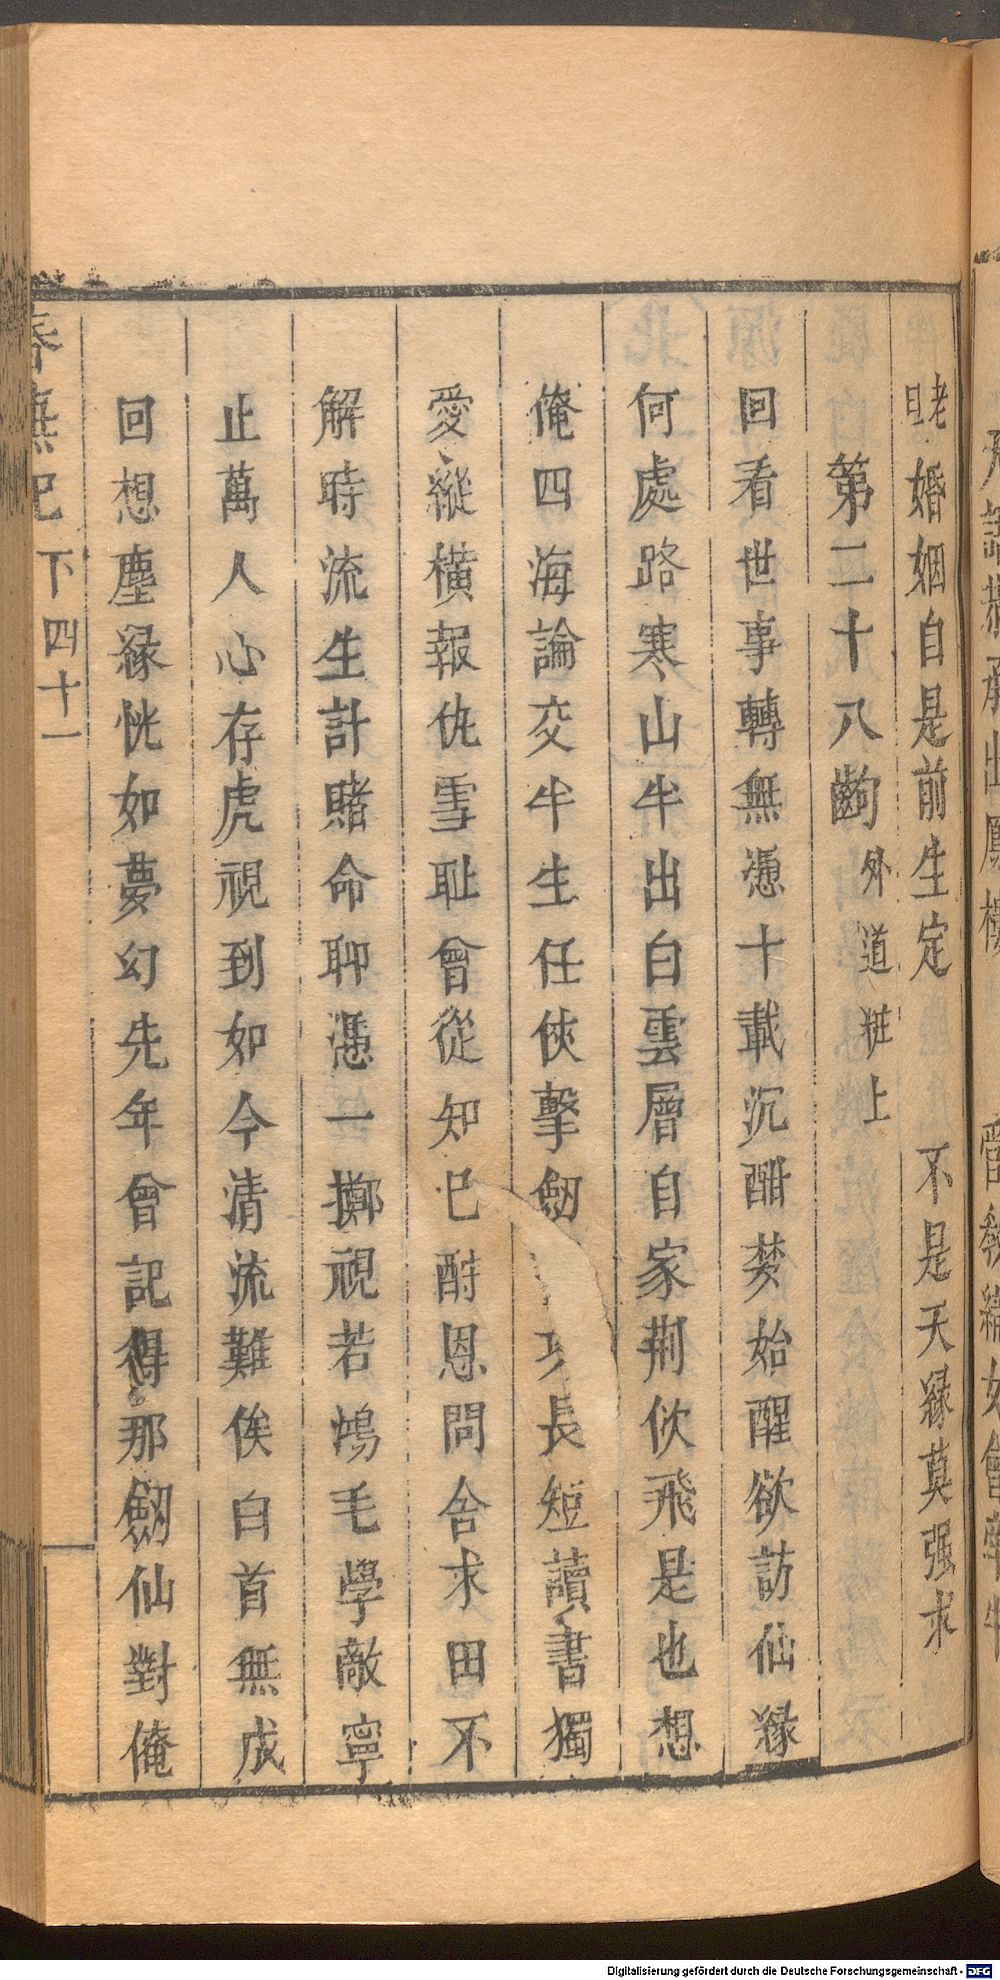 老旦婚姻自是前生定　不是天緣莫强求
第二十八齣外道粧上
回看世事轉無憑十載沉酣夢始醒欲訪仙緣
何處路寒山半出白雲層自家荆佽飛是也想
俺四海論交半生任俠擊劒長短讀書獨
愛縱橫報仇雪耻曾從知已酧恩問舍求田不
解時流生計賭命聊憑一擲視若鴻毛學敵寧
止萬人心存虎視到如今清流難俟白首無成
回想塵緣恍如夢幻先年曾記得那劒仙對俺
春蕪記　下　四十一
Digitalisierung gefördert durch die Deutsche Forschungsgemeinschaft - DFG